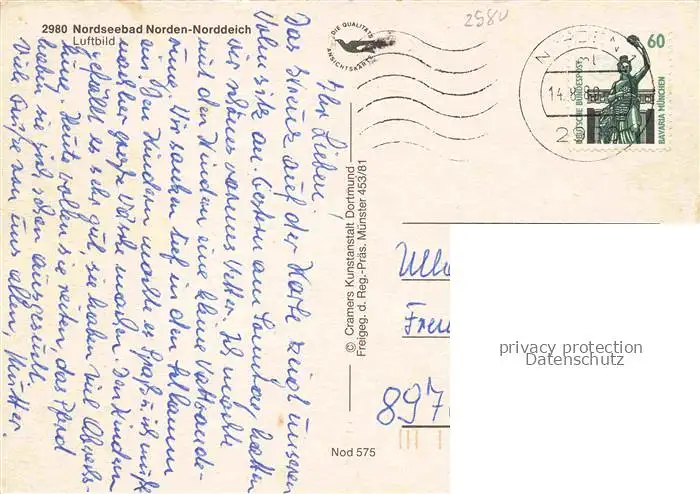 2980 Nordseebad Norden-Norddeich
Luftbild
DIE QUALITÄTS
ANSICHTSKARTE
2980
NORDEN
14.8.89
60
DEUTSCHE BUNDESPOST
BAVARIA MÜNCHEN
Ihr Lieben!
Das Kreuz auf der Karte zeigt unseren
Wohnsitz an. Gestern am Sonntag hatten
wir schönes warmes Wetter. Ich machte
mit den Kindern eine kleine Wattwande-
rung. Wir sanken tief in den
ein. Den Kindern machte es Spaß, ich mußte
nachher große Wäsche machen. Den Kindern
gefällt es sehr gut, sie haben viel
Heute wollen sie reiten, das Pferd
haben sie sich schon ausgesucht.
Viele Grüße von uns allen, Mutter.
© Cramers Kunstanstalt Dortmund
Freigeg. d. Reg.-Präs. Münster 453/81
897
Nod 575
privacy protection
Datenschutz